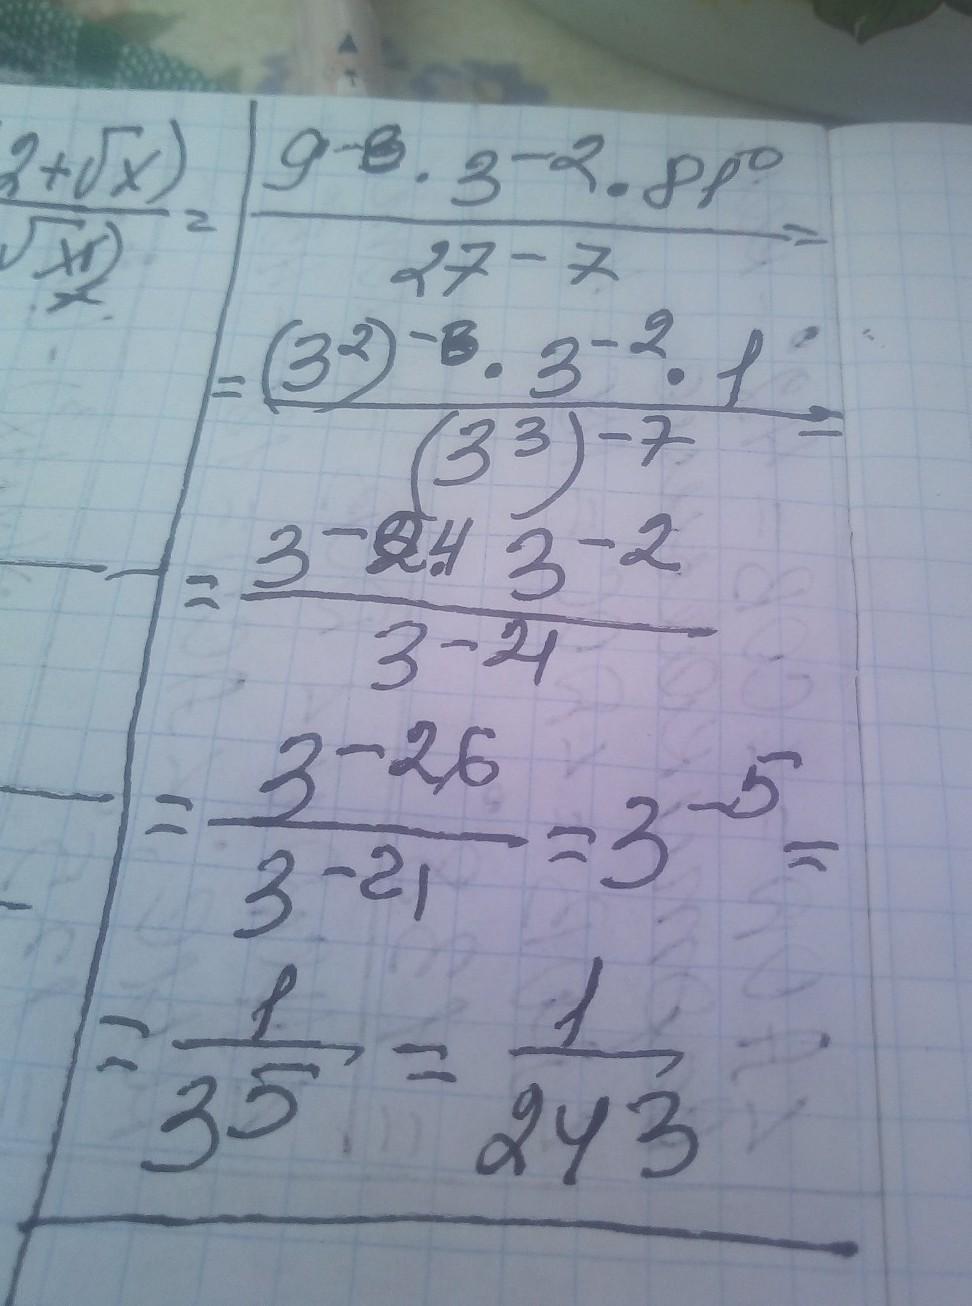 2+√x)
√x) =
x
9⁻⁸ · 3⁻² · 81⁰ =
27⁻⁷
= (3²)⁻⁸ · 3⁻² · 1 =
(3³)⁻⁷
= 3⁻²⁴ · 3⁻²
3⁻²¹
= 3⁻²⁶ = 3⁻⁵ =
3⁻²¹
= 1 = 1
3⁵ 243